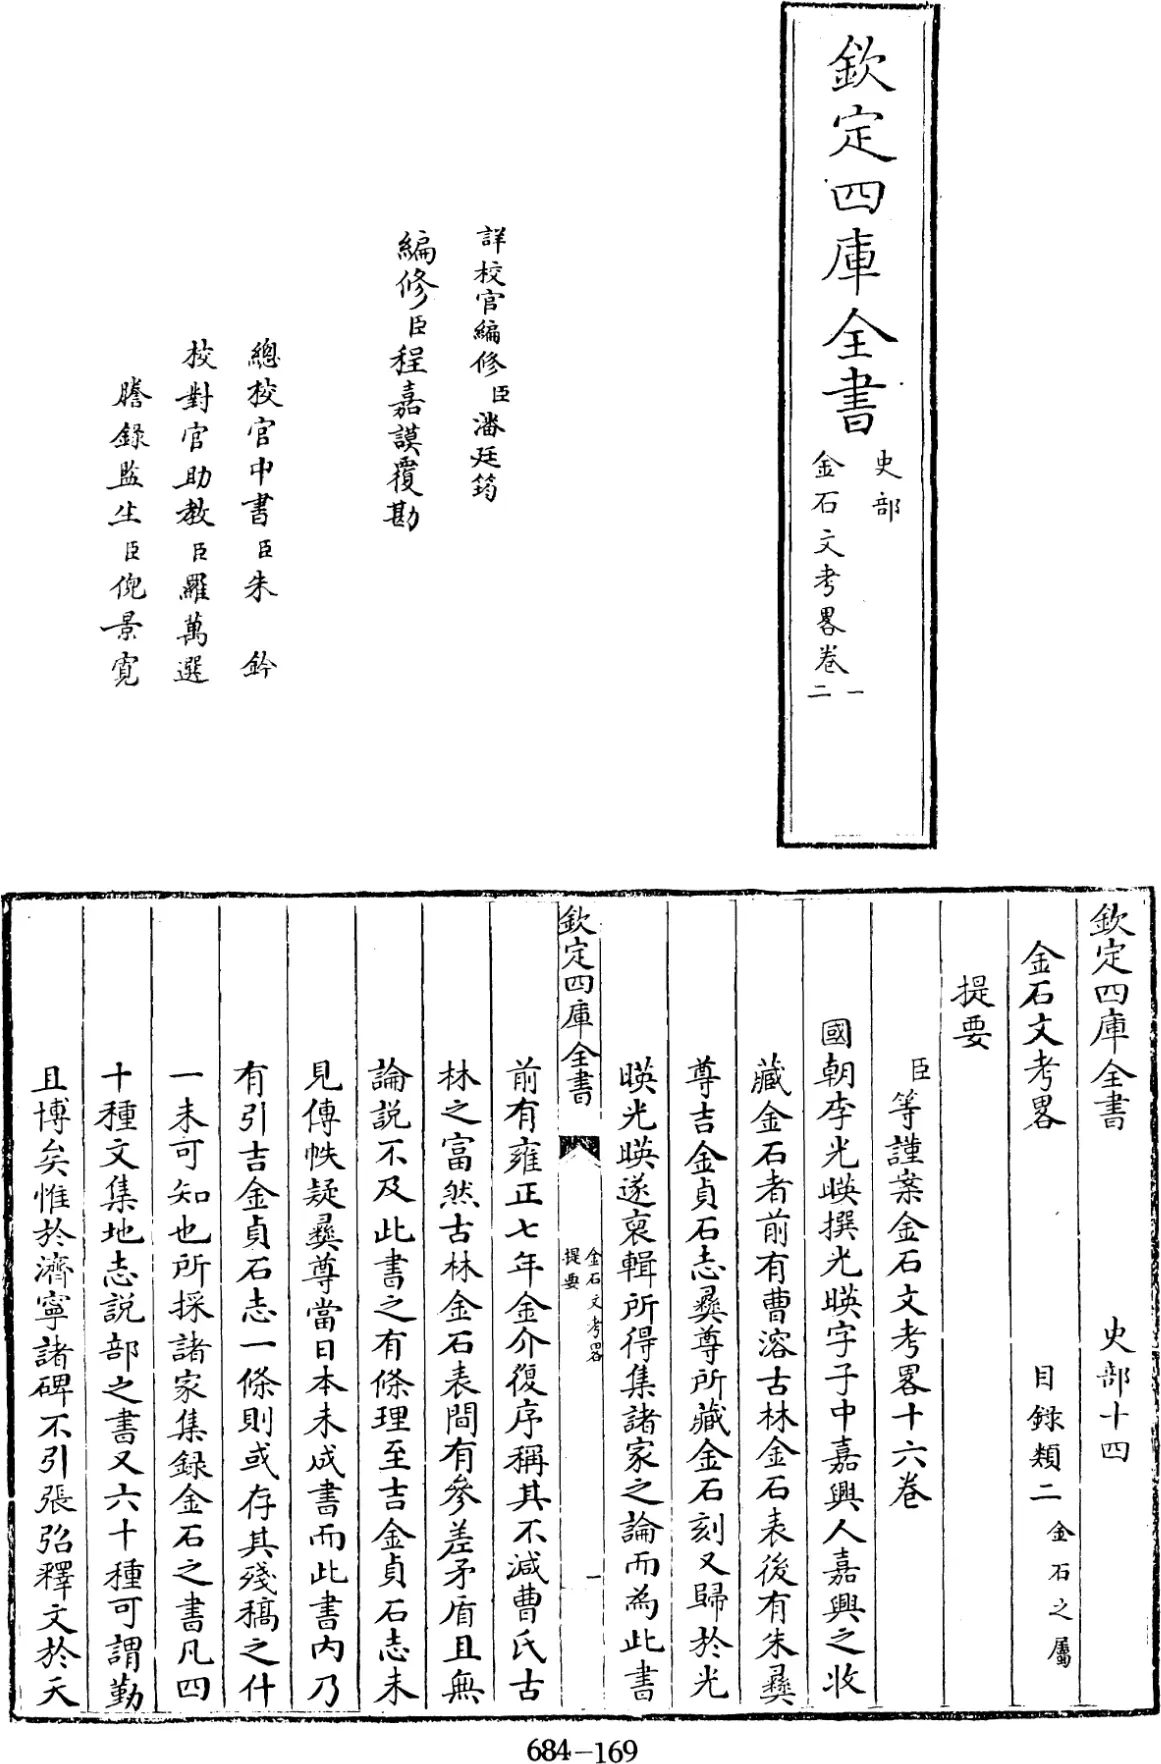 欽定四庫全書
史部
金石文考畧卷一
二
詳校官編修臣潘廷筠
編修臣程嘉謨覆勘
總校官中書臣朱鈐
校對官助教臣羅萬選
謄錄監生臣倪景寬
欽定四庫全書 史部十四
金石文考畧 目錄類二 金石之屬
提要
臣等謹案金石文考畧十六卷
國朝李光暎撰光暎字子中嘉興人嘉興之收
藏金石者前有曹溶古林金石表後有朱彞
尊吉金貞石志彞尊所藏金石刻又歸於光
暎光暎遂裒輯所得集諸家之論而為此書
欽定四庫全書 金石文考畧
提要 一
前有雍正七年金介復序稱其不減曹氏古
林之富然古林金石表間有參差矛盾且無
論説不及此書之有條理至吉金貞石志未
見傳帙疑彞尊當日本未成書而此書内乃
有引吉金貞石志一條則或存其殘稿之什
一未可知也所採諸家集録金石之書凡四
十種文集地志説部之書又六十種可謂勤
且博矣惟於濟寧諸碑不引張弨釋文於天
684-169